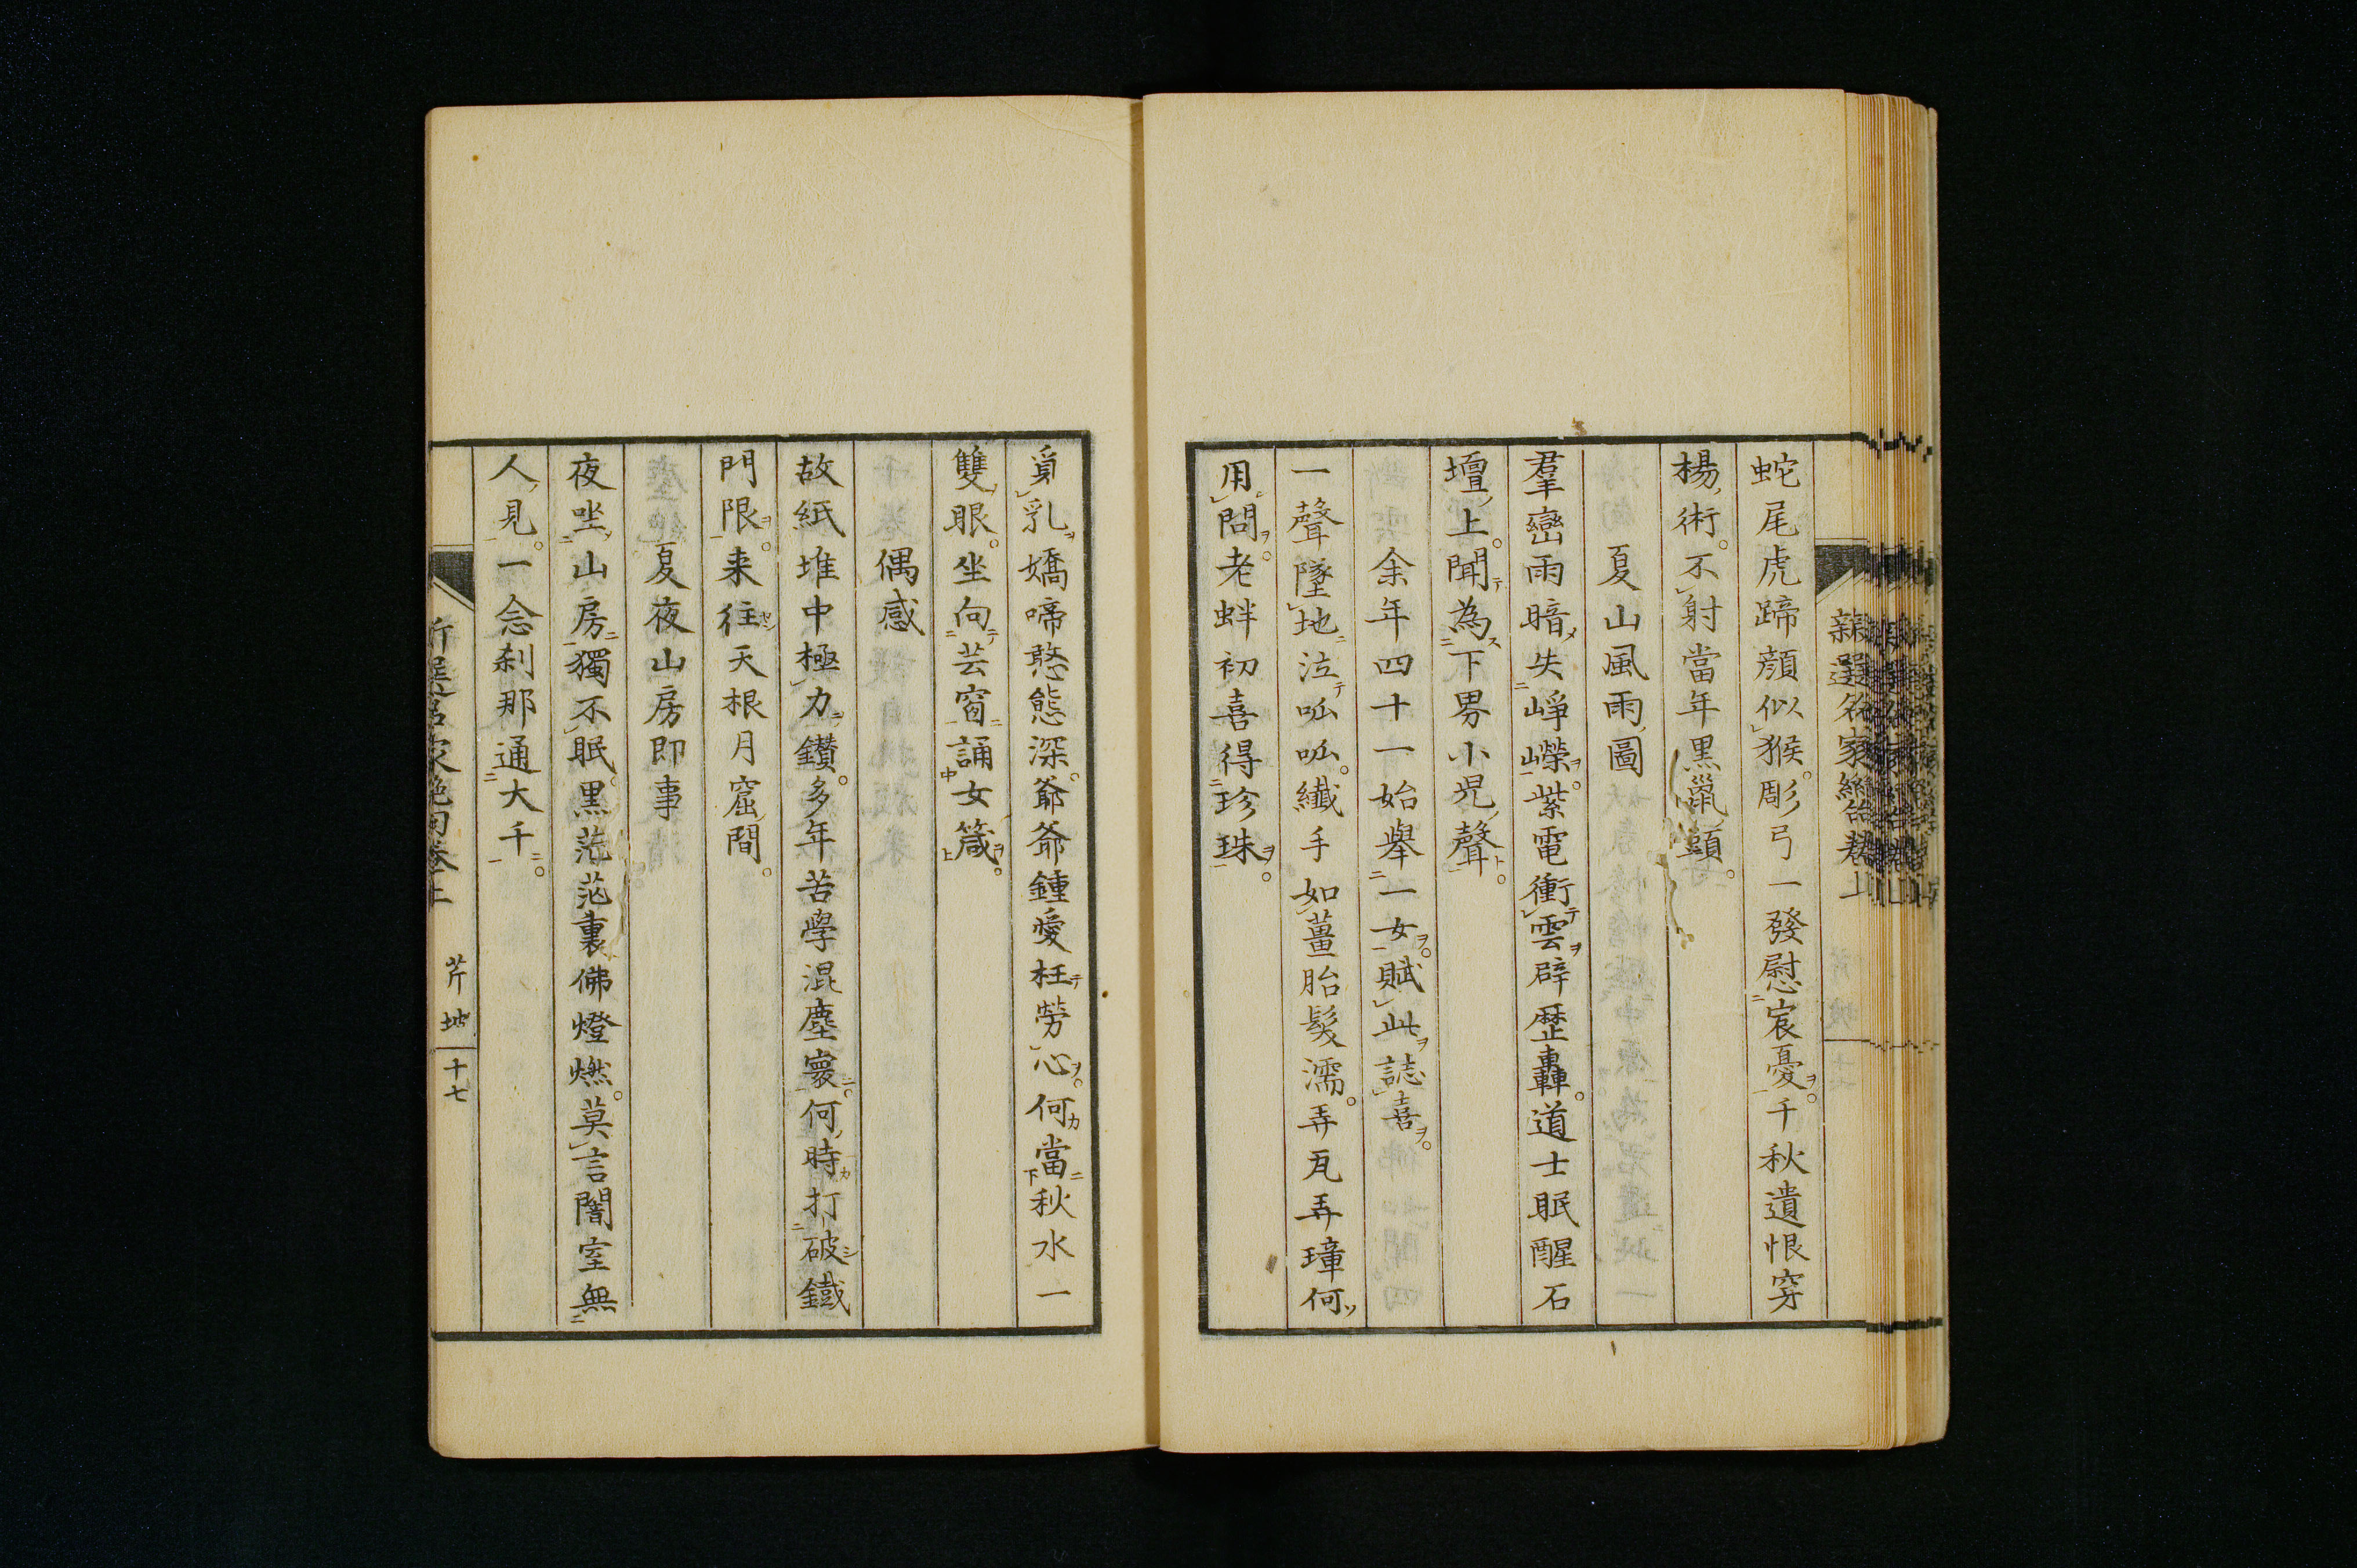 新選名家絶句卷上
蛇尾虎蹄顔似猴。彫弓一發慰宸憂。千秋遺恨穿
楊術。不射當年黑鼠頭。
夏山風雨圖
羣巒雨暗失崢嶸。紫電衝雲辟歷轟。道士眠醒石
壇上。聞為下界小児聲。
余年四十一始擧一女。賦此誌喜。
一聲墜地泣呱呱。纎手如薑胎髮濡。弄瓦弄璋何
用問。老蚌初喜得珍珠。
覓乳嬌啼憨態深。爺爺鍾愛枉勞心。何當秋水一
雙眼。坐向芸窗誦女箴。
偶感
故紙堆中極力鑽。多年苦學混塵寰。何時打破鐵
門限。来往天根月窟間。
夏夜山房即事
夜坐山房獨不眠。黒茫茫裏佛燈燃。莫言闇室無
人見。一念刹那通大千。
新選名家絶句卷上 芹坡 十七